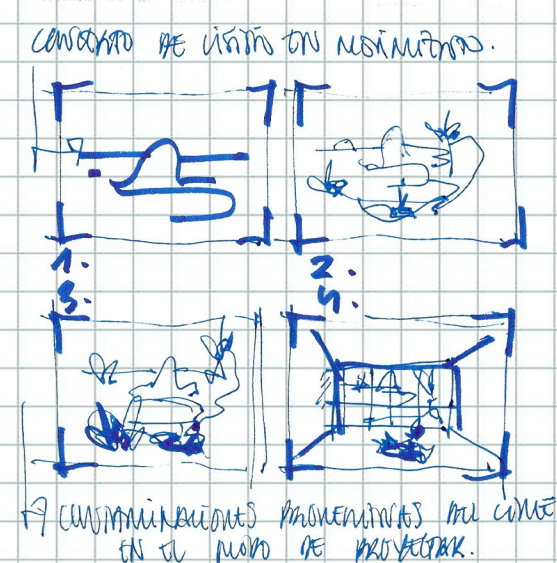 CONCEPTO DE VISIÓN EN MOVIMIENTO.
1. 2.
3. 4.
CONTAMINACIONES PROVENIENTES DEL CINE
EN EL MODO DE PROYECTAR.